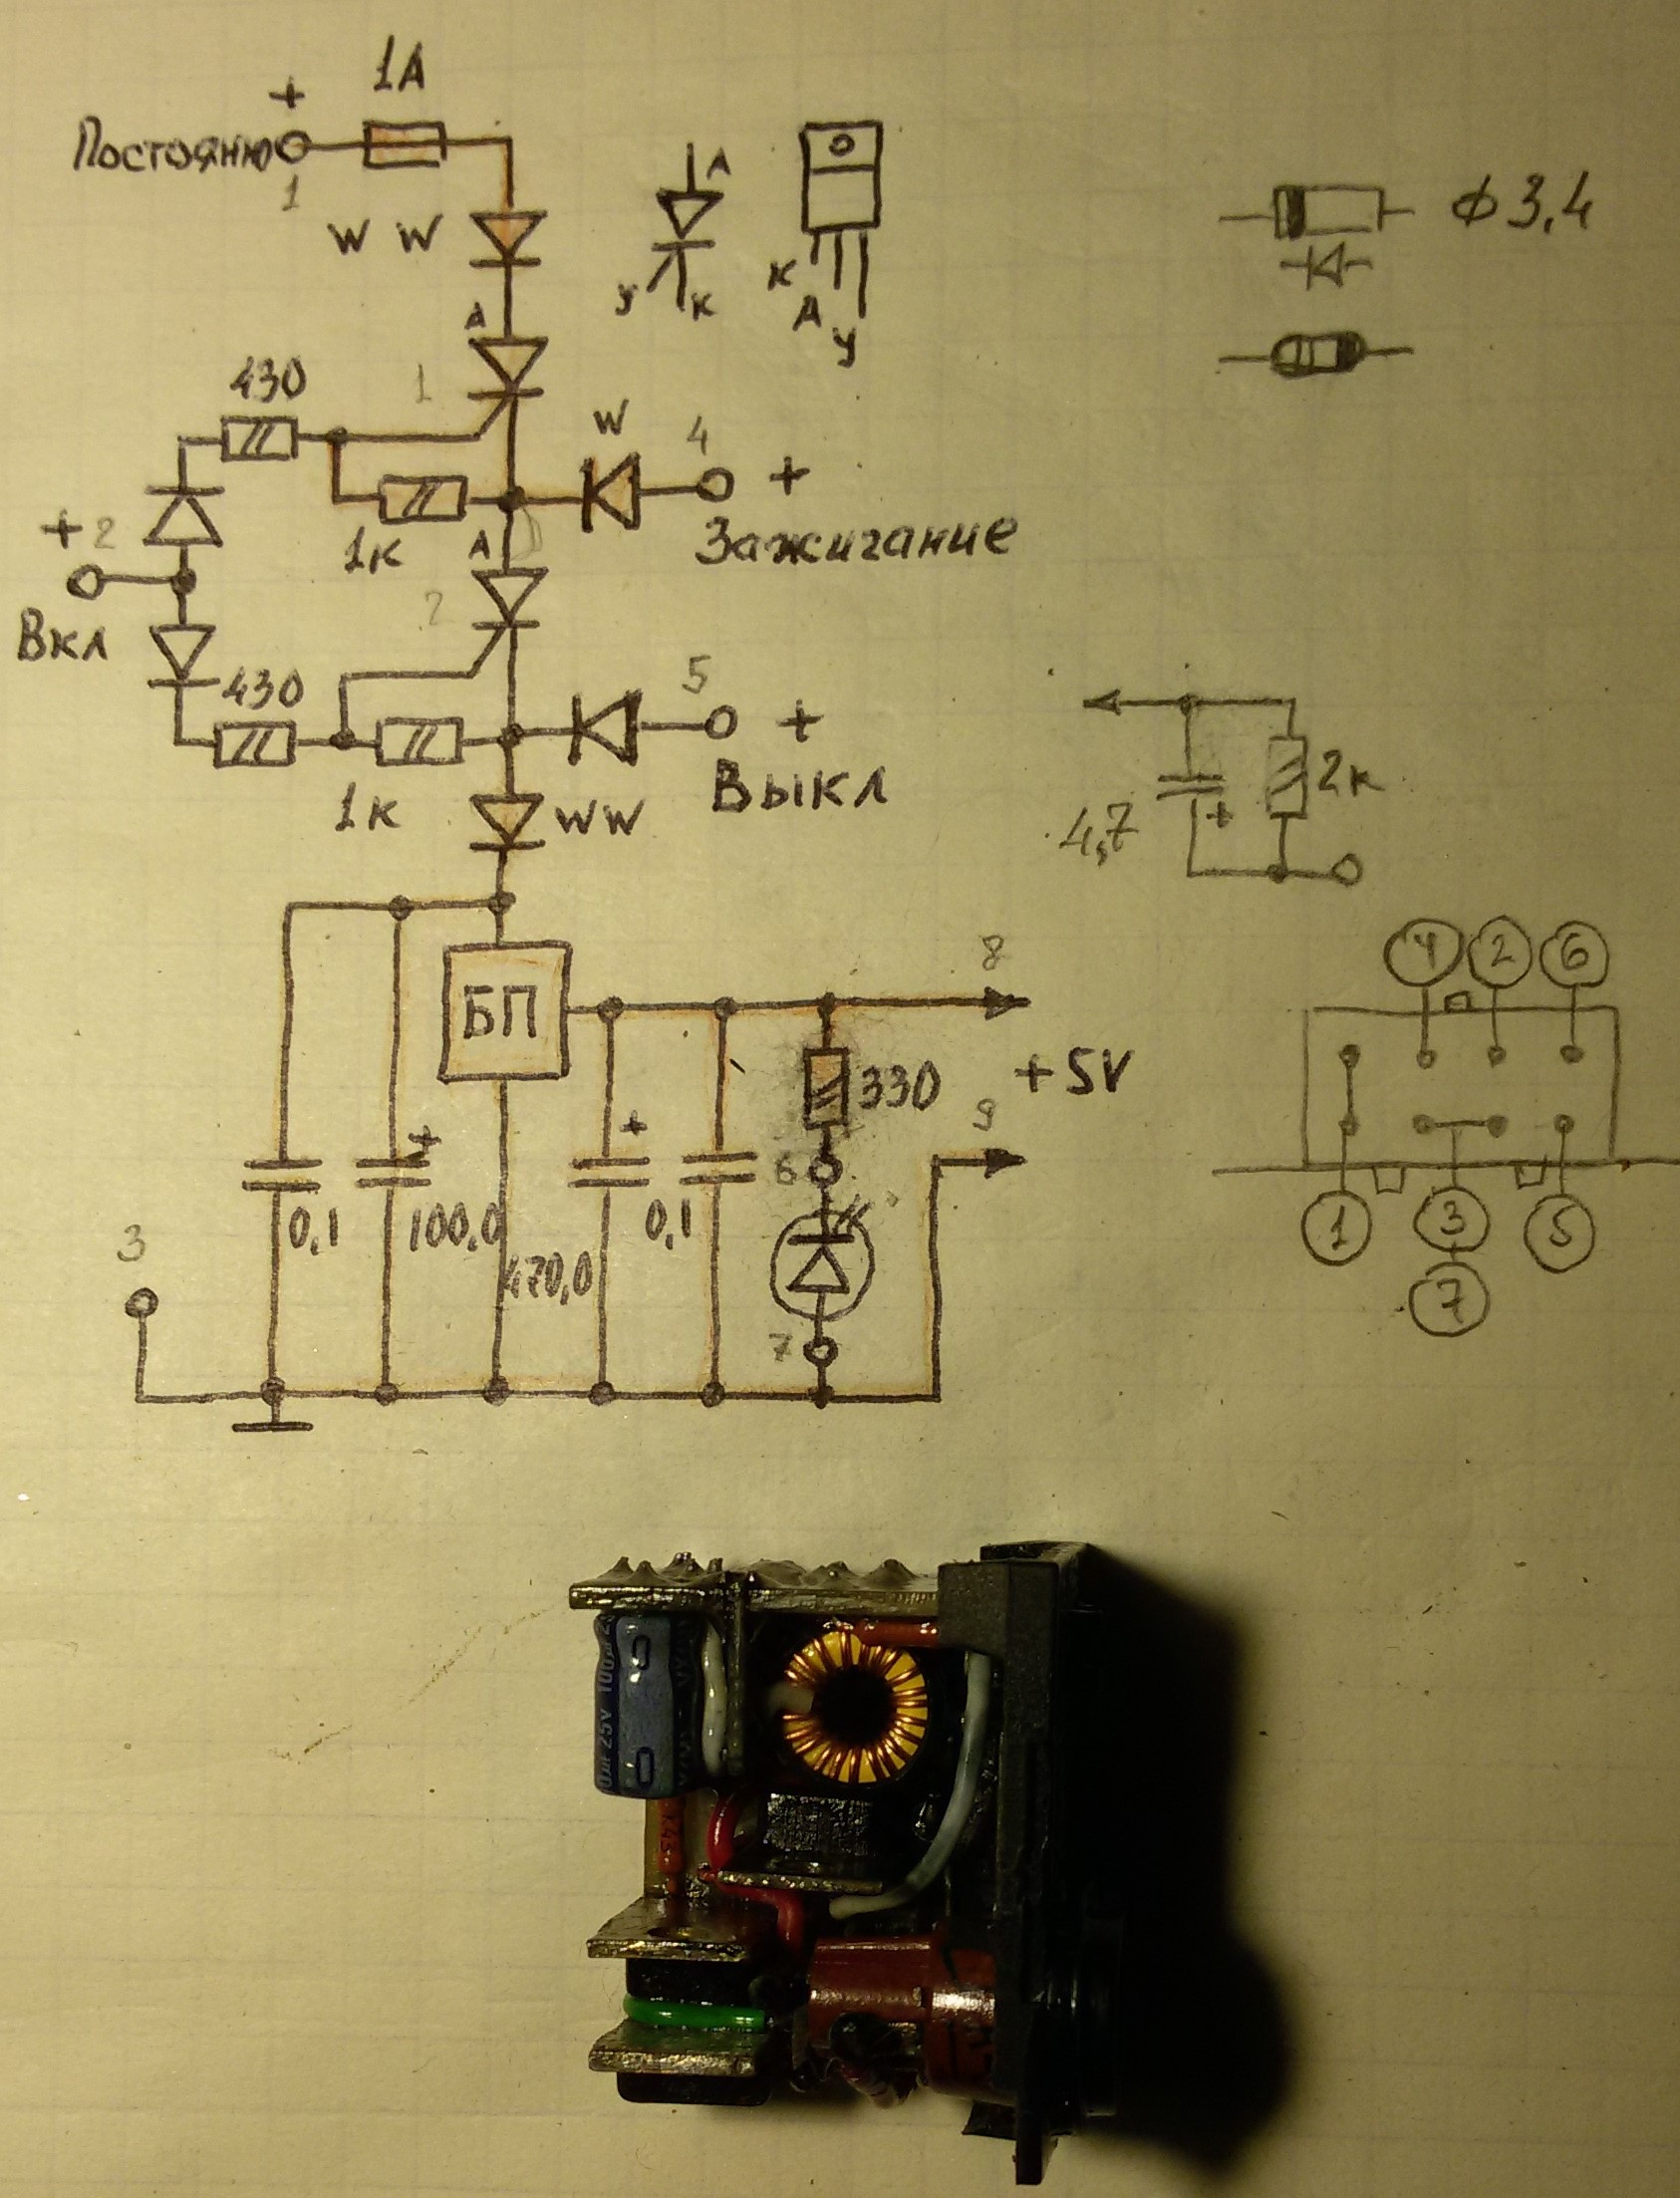 1А
+
Постоянно
1
W W
А
У К
К А У
ф 3,4
А
1
430
1к
W
4
+
Зажигание
+ 2
Вкл
А
2
430
1к
5
+
Выкл
WW
4,7
+
2к
БП
8
+5V
9
330
+
+
6
0,1
100,0
470,0
0,1
7
3
4 2 6
1 3 5
7